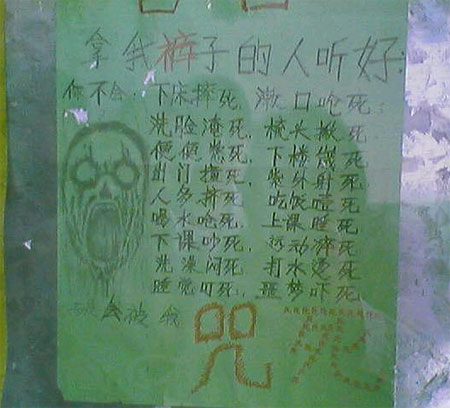 拿我裤子的人听好:
你不会: 下床摔死, 漱口呛死;
洗脸淹死, 梳头死
便便熏死, 下楼死
出门横死, 紫外射死
人多挤死, 吃饭噎死
喝水呛死. 上课睡死
下课吵死 运动猝死
洗澡闷死 打水烫死
睡觉叮死, 噩梦吓死
会被我 咒死